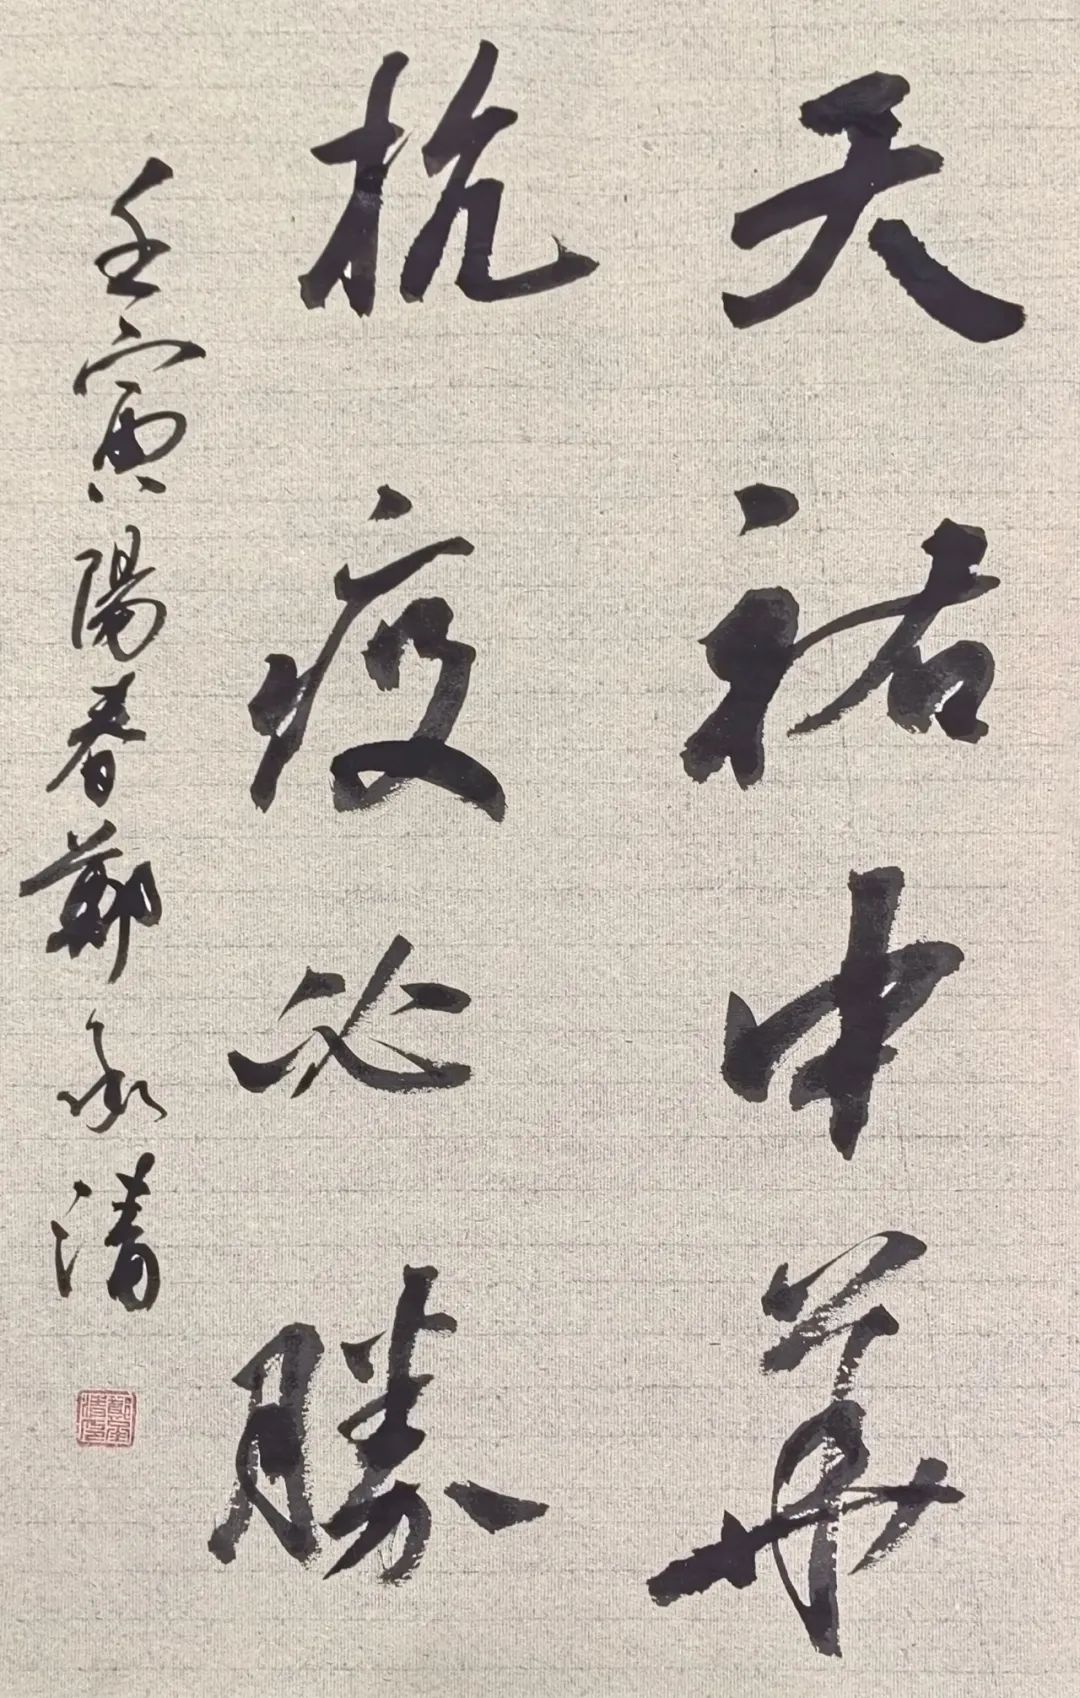 天祐中華
抗疫必勝
壬寅陽春鄭永清